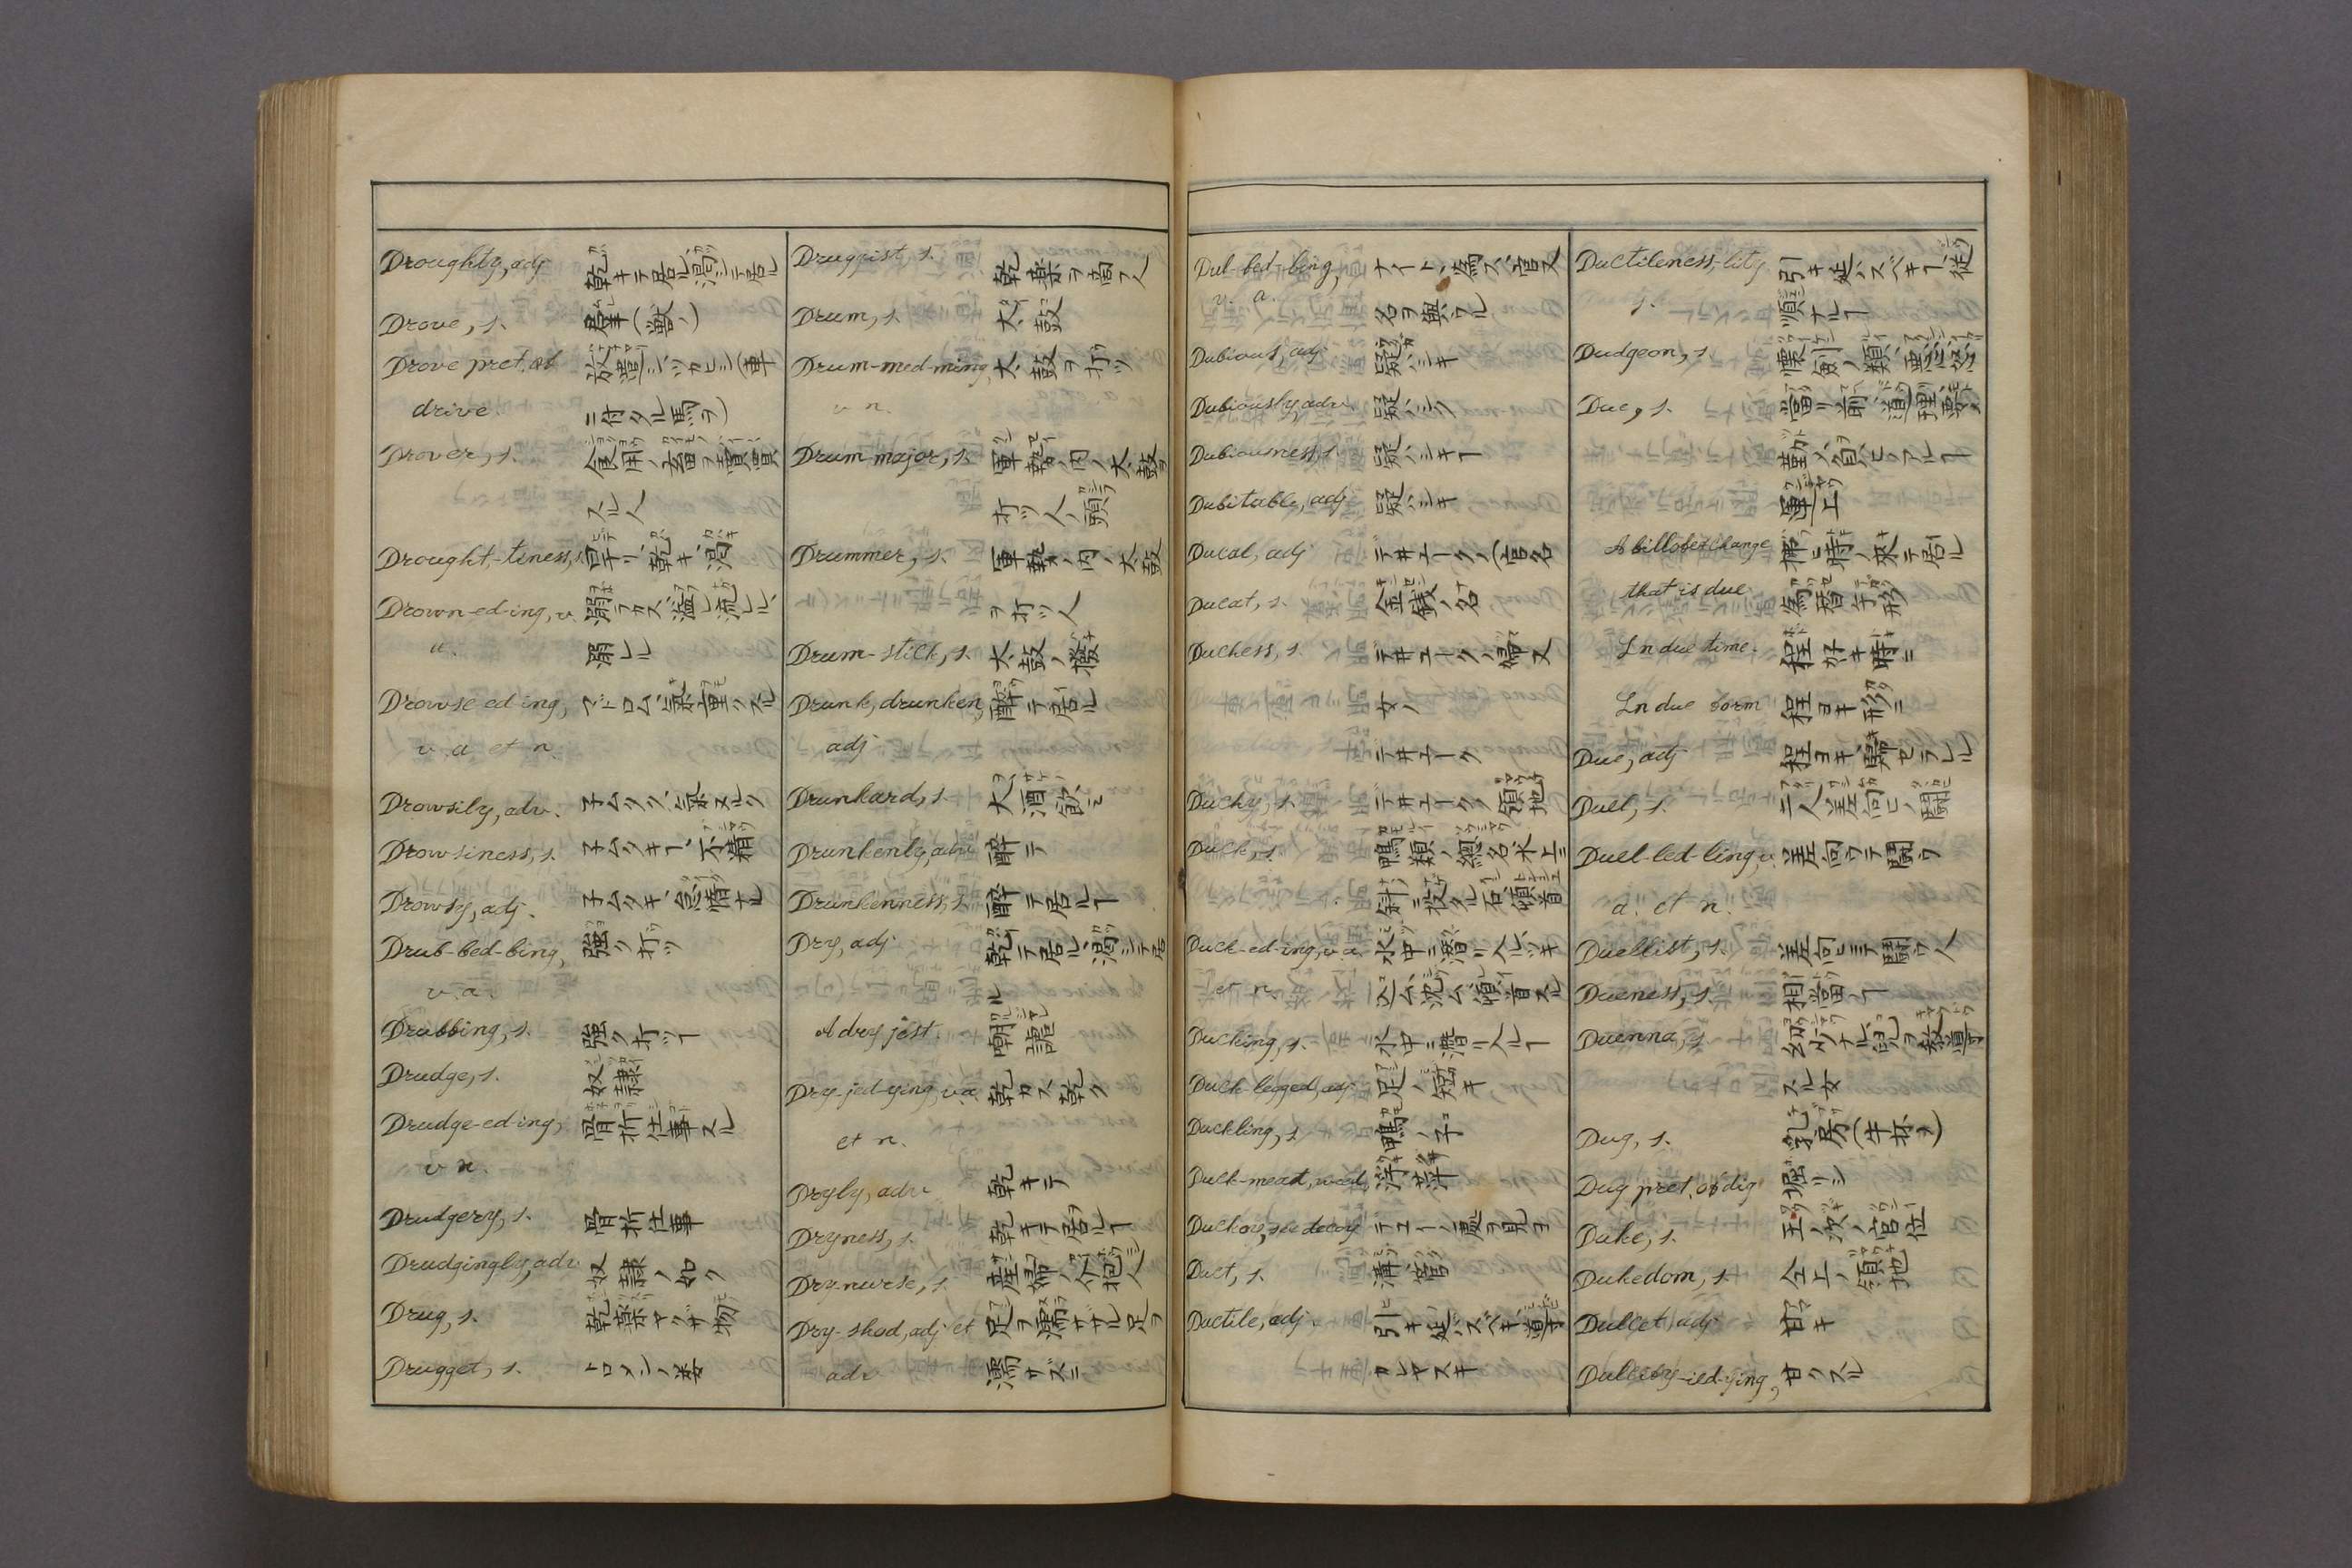 Droughty, adj 乾キテ居ル渇シテ居ル
Drove, s. 羣(獣ノ)
Drove pret. of 放逭シツカヒシ(車
drive. ニ付タル馬ヲ)
Drover, s. 食用ノ畜ヲ賣買
スル人
Drought,-tiness, s. 旱リ、乾キ、渇
Drown-ed-ing, v. 溺ラカス溢レ流ヒル、
a. 溺レル
Drowse-ed-ing, マドロム氣重クスル
v. a et n.
Drowsily, adv. 子ムクク、氣ヌルク
Drowsiness, s. 子ムクキヿ、不精
Drowsy, adj. 子ムクキ、怠惰ナル
Drub-bed-bing, 強ク打ツ
v. a.
Drubbing, s. 強ク打ツヿ
Drudge, s. 奴隷
Drudge-ed-ing, 骨折仕事スル
v. n.
Drudgery, s. 骨折仕事
Drudgingly, adv. 奴隷ノ如ク
Drug, s. 乾藥マツサ物
Drugget, s. トロメンノ類
Druggist, s. 乾藥ヲ商フ人
Drum, s. 太鼓
Drum-med-ming, 太鼓ヲ打ツ
v n.
Drum-major, s. 軍勢ノ内ノ太鼓
打ツ人ノ頭
Drummer, s. 軍勢ノ内ノ太鼓
ヲ打ツ人
Drum-stick, s. 太鼓ノ撥
Drunk, drunken, 酔テ居ル
adj
Drunkard, s. 大酒飲ミ
Drunkenly, adv 酔テ
Drunkenness, s. 酔テ居ルヿ
Dry, adj. 乾テ居ル渇シテ居
ル
A dry jest. 嘲謔
Dry-jed-ying, v. a 乾カス乾ク
et n.
Dryly, adv 乾キテ
Dryness, s. 乾キテ居ルヿ
Dry-nurse, s. 産婦ノ介抱人
Dry-shod, adj et 足ヲ濡サザル足ヲ
adv 濡サズニ
Dub-bed-bing, ナイト、為ス、官又
v. a. 名ヲ與フル
Dubious, adj 疑ハシキ
Dubiously, adv. 疑ハシク
Dubiousness, s. 疑ハシキヿ
Dubitable, adj 疑ハシキ
Ducal, adj デ井ユークノ(官名
Ducat, s. 金銭ノ名
Duchess, s. デ井ユークノ婦又
女ノ
デ井ユーク
Duchy, s. デ井ユークノ領地
Duck, s. 鴨類ノ總名水上ニ
斜ニ投タル石傾首
Duck-ed-ing, v. a 水中ニ潜リ入ル、ツキ
et n. 込ム沈ム傾首スル
Ducking, s. 水中ニ潜リ入ルヿ
Duck-legged, adj. 足ノ短キ
Duckling, s. 鴨ノ子
Duck-meat, weed, 浮萍
Duckoy, see decoy デコーノ處ヲ見ヨ
Duct, s. 溝管
Ductile, adj. 引キ延ハスベキ導
カレヤスキ
Ductileness,-lity, 引キ延ハスベキヿ、従
s. 順ナルヿ
Dudgeon, s. 懐劍ノ類、悪怒
Due, s. 當リ前ノ道理
Abill of exchange 拂ヒ時ノ来テ居ル
that is due. 為替手形
In due time. 程好キ時ニ
In due form 程ヨキ形ニ
Due, adj 程ヨキ、歸セラレル
Duel, s. 二人差向ヒノ鬪
Duel-led-ling, v. 差向ツテ鬪ウ
a. et n.
Duellist, s. 差向ヒテ鬪ウ人
Dueness, s. 相當ノヿ
Duenna, s. 幼少ナル兒ヲ教導
スル女
Dug, s. 乳房(牛抔ノ)
Dug pret. of dig 堀リシ
Duke, s. 王ノ次ノ官位
Dukedom, s. 仝上ノ領地
Dulcet, adj. 甘キ
Dulcify-ied-ying, 甘クスル